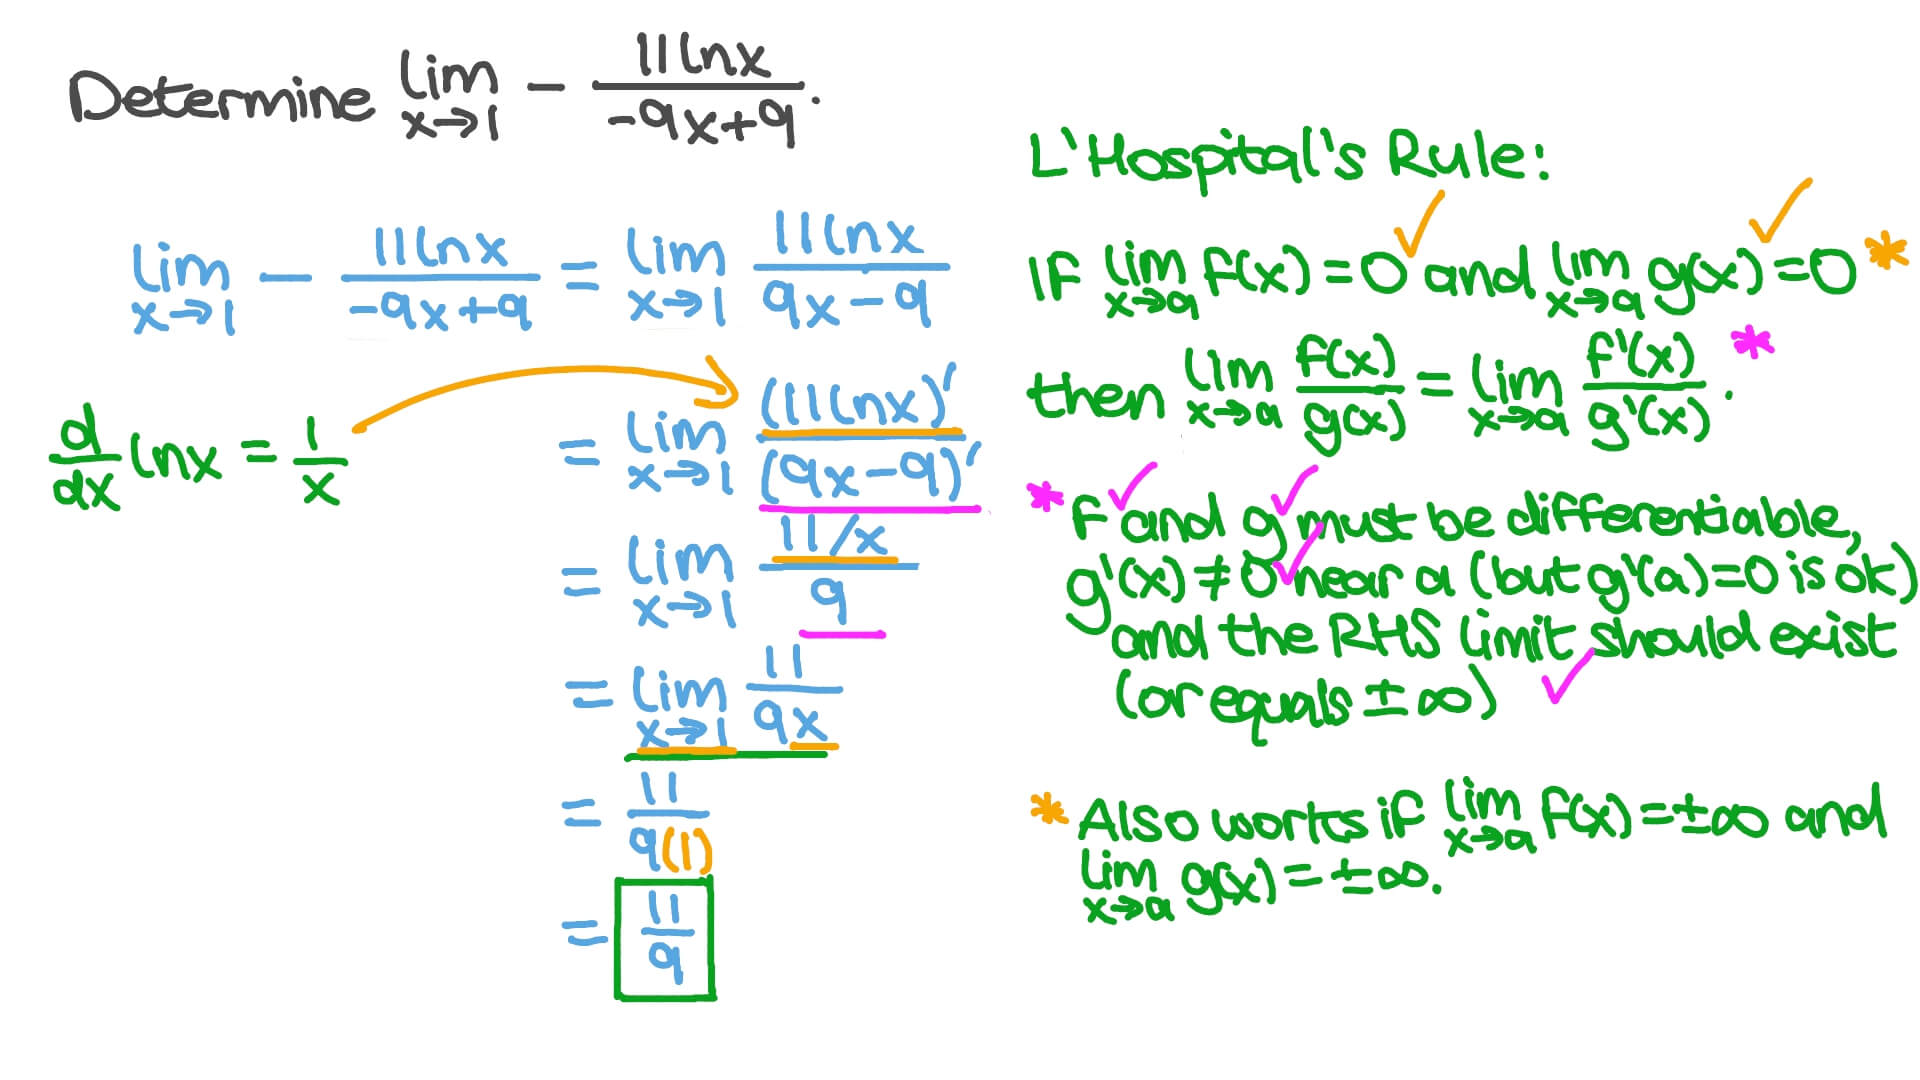 Determine lim x→1 − 11 ln x / −9x+9.
lim x→1 − 11 ln x / −9x+9 = lim x→1 11 ln x / 9x−9
d/dx ln x = 1/x
= lim x→1 (11 ln x)' / (9x−9)'
= lim x→1 11/x / 9
= lim x→1 11 / 9x
= 11 / 9(1)
= 11/9
L'Hospital's Rule:
If lim x→a f(x) = 0 ✓ and lim x→a g(x) = 0 ✓ *
then lim x→a f(x)/g(x) = lim x→a f'(x)/g'(x). *
* f ✓ and g ✓ must be differentiable,
g'(x) ≠ 0 ✓ near a (but g'(a)=0 is ok)
and the RHS limit should exist
(or equals ±∞) ✓
* Also works if lim x→a f(x) = ±∞ and
lim x→a g(x) = ±∞.